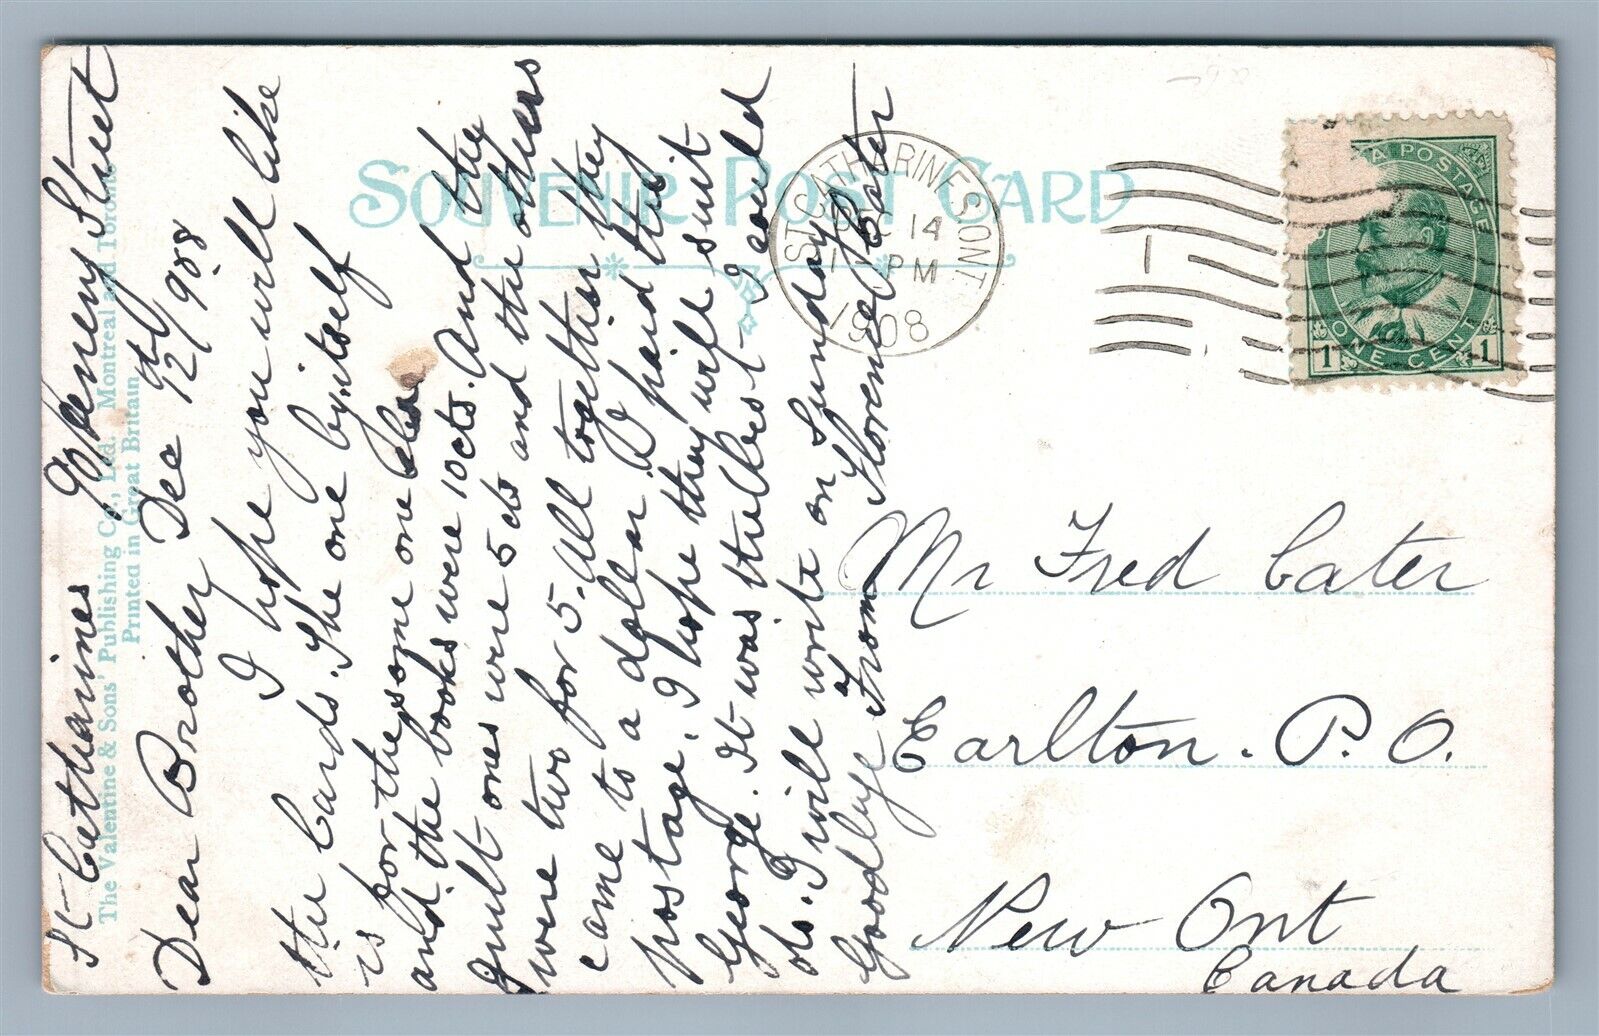 St Catharines 90 Keneny Street
Dear Brother Dec 12/98
I hope you will like
the Cards. The one by itself
is for the some one
and the books were 10cts. And the
quilt ones were 5 cts and the others
were two for 5. All together they
came to a dollar. I paid this
postage. I hope they will suit
George. It was the best I could
do. I will write on Sunday
Goodbye From Florence Cater
The Valentine & Sons' Publishing Co., Ltd. Montreal and Toronto
Printed in Great Britain
SOUVENIR POST CARD
ST. CATHARINES ONT.
14
PM
1908
1
A POSTAGE
ONE CENT
1 1
Mr Fred Cater
Earlton. P. O.
New Ont
Canada